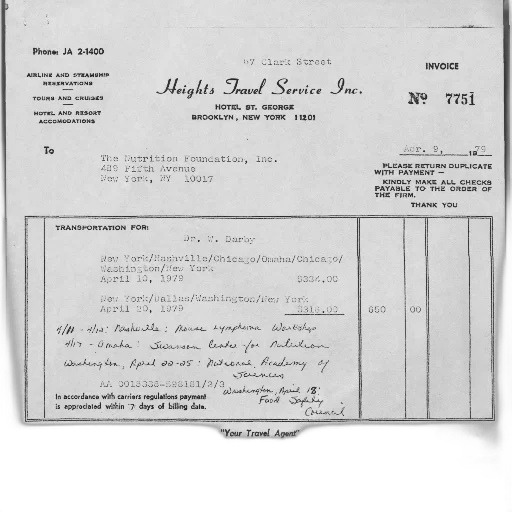 Phone: JA 2-1400
97 Clark Street
INVOICE
AIRLINE AND STEAMSHIP
RESERVATIONS
TOURS AND CRUISES
HOTEL AND RESORT
ACCOMODATIONS
Heights Travel Service Inc.
HOTEL ST. GEORGE
BROOKLYN, NEW YORK 11201
No 7751
To
Apr. 9, 1979
The Nutrition Foundation, Inc.
489 Fifth Avenue
New York, NY 10017
PLEASE RETURN DUPLICATE
WITH PAYMENT —
KINDLY MAKE ALL CHECKS
PAYABLE TO THE ORDER OF
THE FIRM.
THANK YOU
TRANSPORTATION FOR:
Dr. W. Darby
New York/Nashville/Chicago/Omaha/Chicago/
Washington/New York
April 10, 1979 $334.00
New York/Dallas/Washington/New York
April 20, 1979 $316.00 650 00
4/11 - 4/12: Nashville: Mouse Lymphoma Workshop
4/17 - Omaha: Swanson Center for Nutrition
Washington, April 22-25: National Academy of
Sciences
AA
Washington, April 18:
Food Safety
Council
In accordance with carriers regulations payment
is appreciated within 7 days of billing date.
"Your Travel Agent"